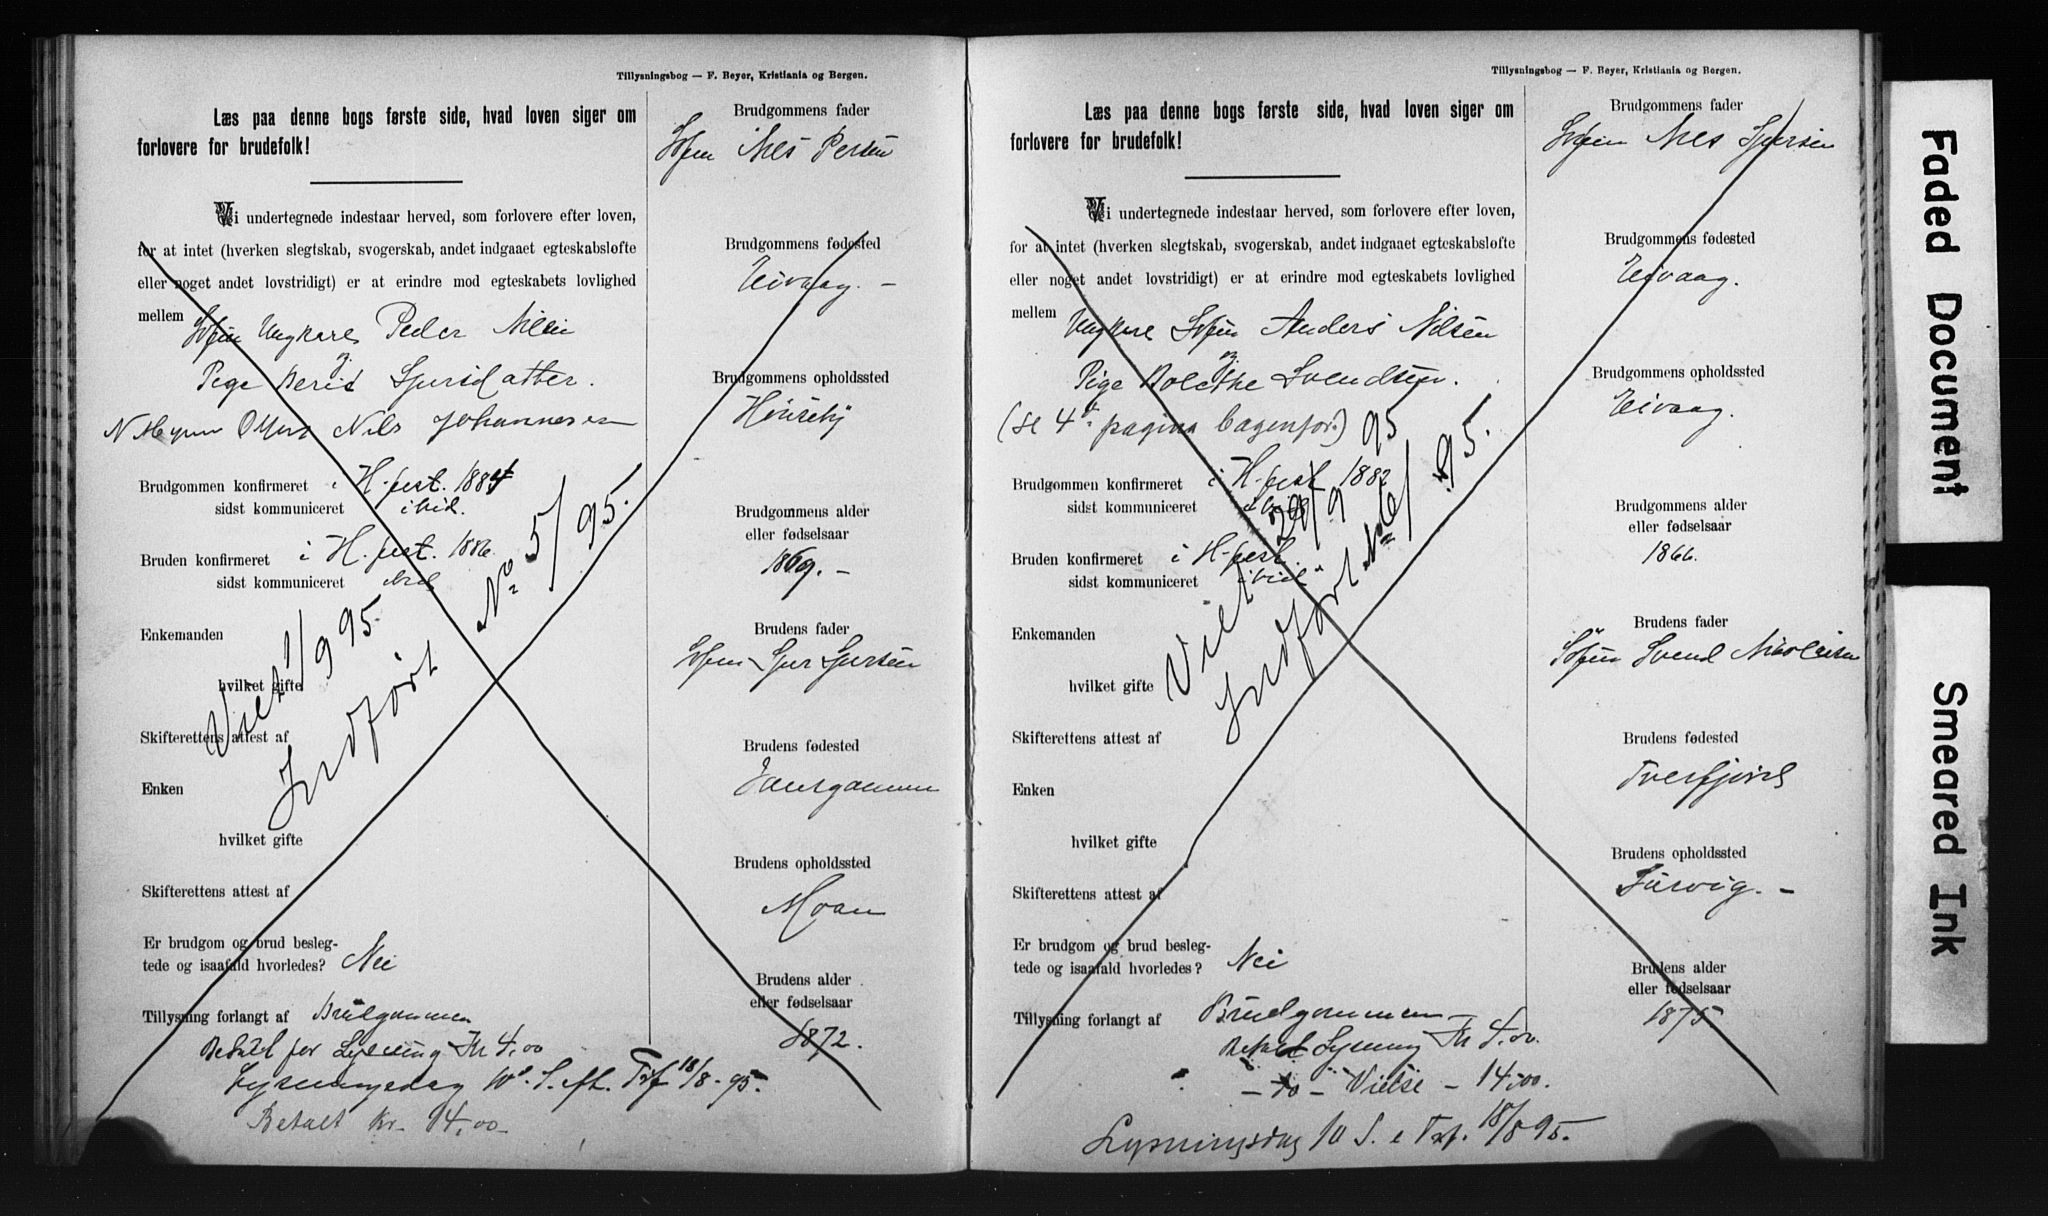 Tillysningsbog — F. Beyer, Kristiania og Bergen.
Læs paa denne bogs første side, hvad loven siger om
forlovere for brudefolk!
Vi undertegnede indestaar herved, som forlovere efter loven,
for at intet (hverken slegtskab, svogerskab, andet indgaaet egteskabsløfte
eller noget andet lovstridigt) er at erindre mod egteskabets lovlighed
mellem
Ungkarl Peder Nilsen
og
Pige Berit
Nils Johannesen
Brudgommen konfirmeret i H.fest. 1884
sidst kommuniceret ibid.
Bruden konfirmeret i H.fest. 1886.
sidst kommuniceret ibid
Enkemanden
hvilket gifte
Skifterettens attest af
Enken
hvilket gifte
Skifterettens attest af
Viet 1/9 95.
Indført No 5/95.
Er brudgom og brud besleg-
tede og isaafald hvorledes? Nei
Tillysning forlangt af Brudgommen
Betalt for Lysning Kr 4,00
Lysningsdag 10de S. eft. Tref 18/8 - 95.
Betalt Kr. 14,00
Brudgommens fader
Nils Persen
Brudgommens fødested
Eivaag. –
Brudgommens opholdssted
Brudgommens alder
eller fødselsaar
1869. –
Brudens fader
Brudens fødested
Brudens opholdssted
Moan
Brudens alder
eller fødselsaar
1872.
Tillysningsbog — F. Beyer, Kristiania og Bergen.
Læs paa denne bogs første side, hvad loven siger om
forlovere for brudefolk!
Vi undertegnede indestaar herved, som forlovere efter loven,
for at intet (hverken slegtskab, svogerskab, andet indgaaet egteskabsløfte
eller noget andet lovstridigt) er at erindre mod egteskabets lovlighed
mellem
Ungkarl Anders Nilsen
og
Pige Bolethe Svendsen.
(se 4de pagina bagenfor.)
Brudgommen konfirmeret i H.fest 1882
sidst kommuniceret ibid
Bruden konfirmeret i H.fest.
sidst kommuniceret ibid
Enkemanden
hvilket gifte
Skifterettens attest af
Enken
hvilket gifte
Skifterettens attest af
Viet 29/9 95
Indført No 6/95.
Er brudgom og brud besleg-
tede og isaafald hvorledes? Nei
Tillysning forlangt af Brudgommen
Betalt Lysning Kr 4.00.
– do – Vielse – 14,00.
Lysningsdag 10 S. e Tref. 18/8 95.
Brudgommens fader
Nils
Brudgommens fødested
Eivaag.
Brudgommens opholdssted
Eivaag.
Brudgommens alder
eller fødselsaar
1866.
Brudens fader
Svend Nicolaisen
Brudens fødested
Tverfjord
Brudens opholdssted
Brudens alder
eller fødselsaar
1875.
Faded Document
Smeared Ink